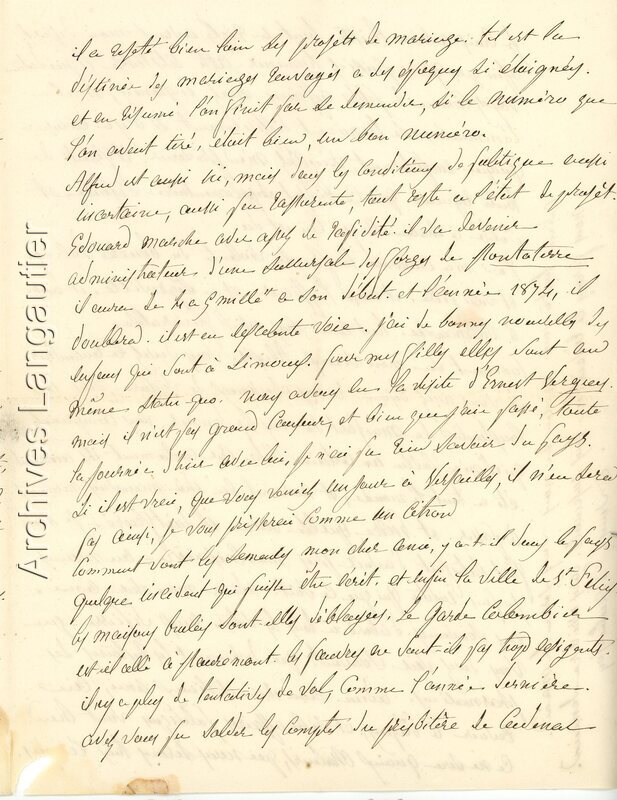 il a resté bien loin des projets de mariage. tel est la
destinée des mariages envisagés a des époques si éloignées.
et en résumé l'on finit par se demander, si le numéro que
l'on avait tiré, était bien, un bon numéro.
Alfred est aussi ici, mais dans les conditions de politique aussi
incertaine, aussi peu rassurante, tout reste a l'état de projet.
Edouard marche avec assez de rapidité. il va devenir
administrateur d'une succursale des forges de Montataire
il aura de 4 a 5 mille ft a son début. et l'année 1874, il
doublera. il est en excellente voie. j'ai de bonnes nouvelles des
enfans qui sont à Limoux. pour mes filles elles sont au
même statu-quo. nous avons eu la visite d'Ernest Vergues.
mais il n'est pas grand causeur, et bien que j'aie passé, toute
la journée d'hier avec lui, je n'ai pu rien savoir du pays.
Si il est vrai, que vous veniez un jour à Versailles, il n'en sera
pas ainsi, je vous presserai comme un citron
Comment vont les semences mon cher ami, y a-t-il dans le pays
quelque incident qui puisse être écrit. et enfin la ville de St Félix
les maisons brulées sont elles déblayées. Le Garde Colombier
est-il allé à les pauvres ne sont-ils pas trop exigents.
il n'y a plus de tentatives de vol, comme l'année dernière.
avez vous pu solder les comptes du presbitère de
Archives Langautier